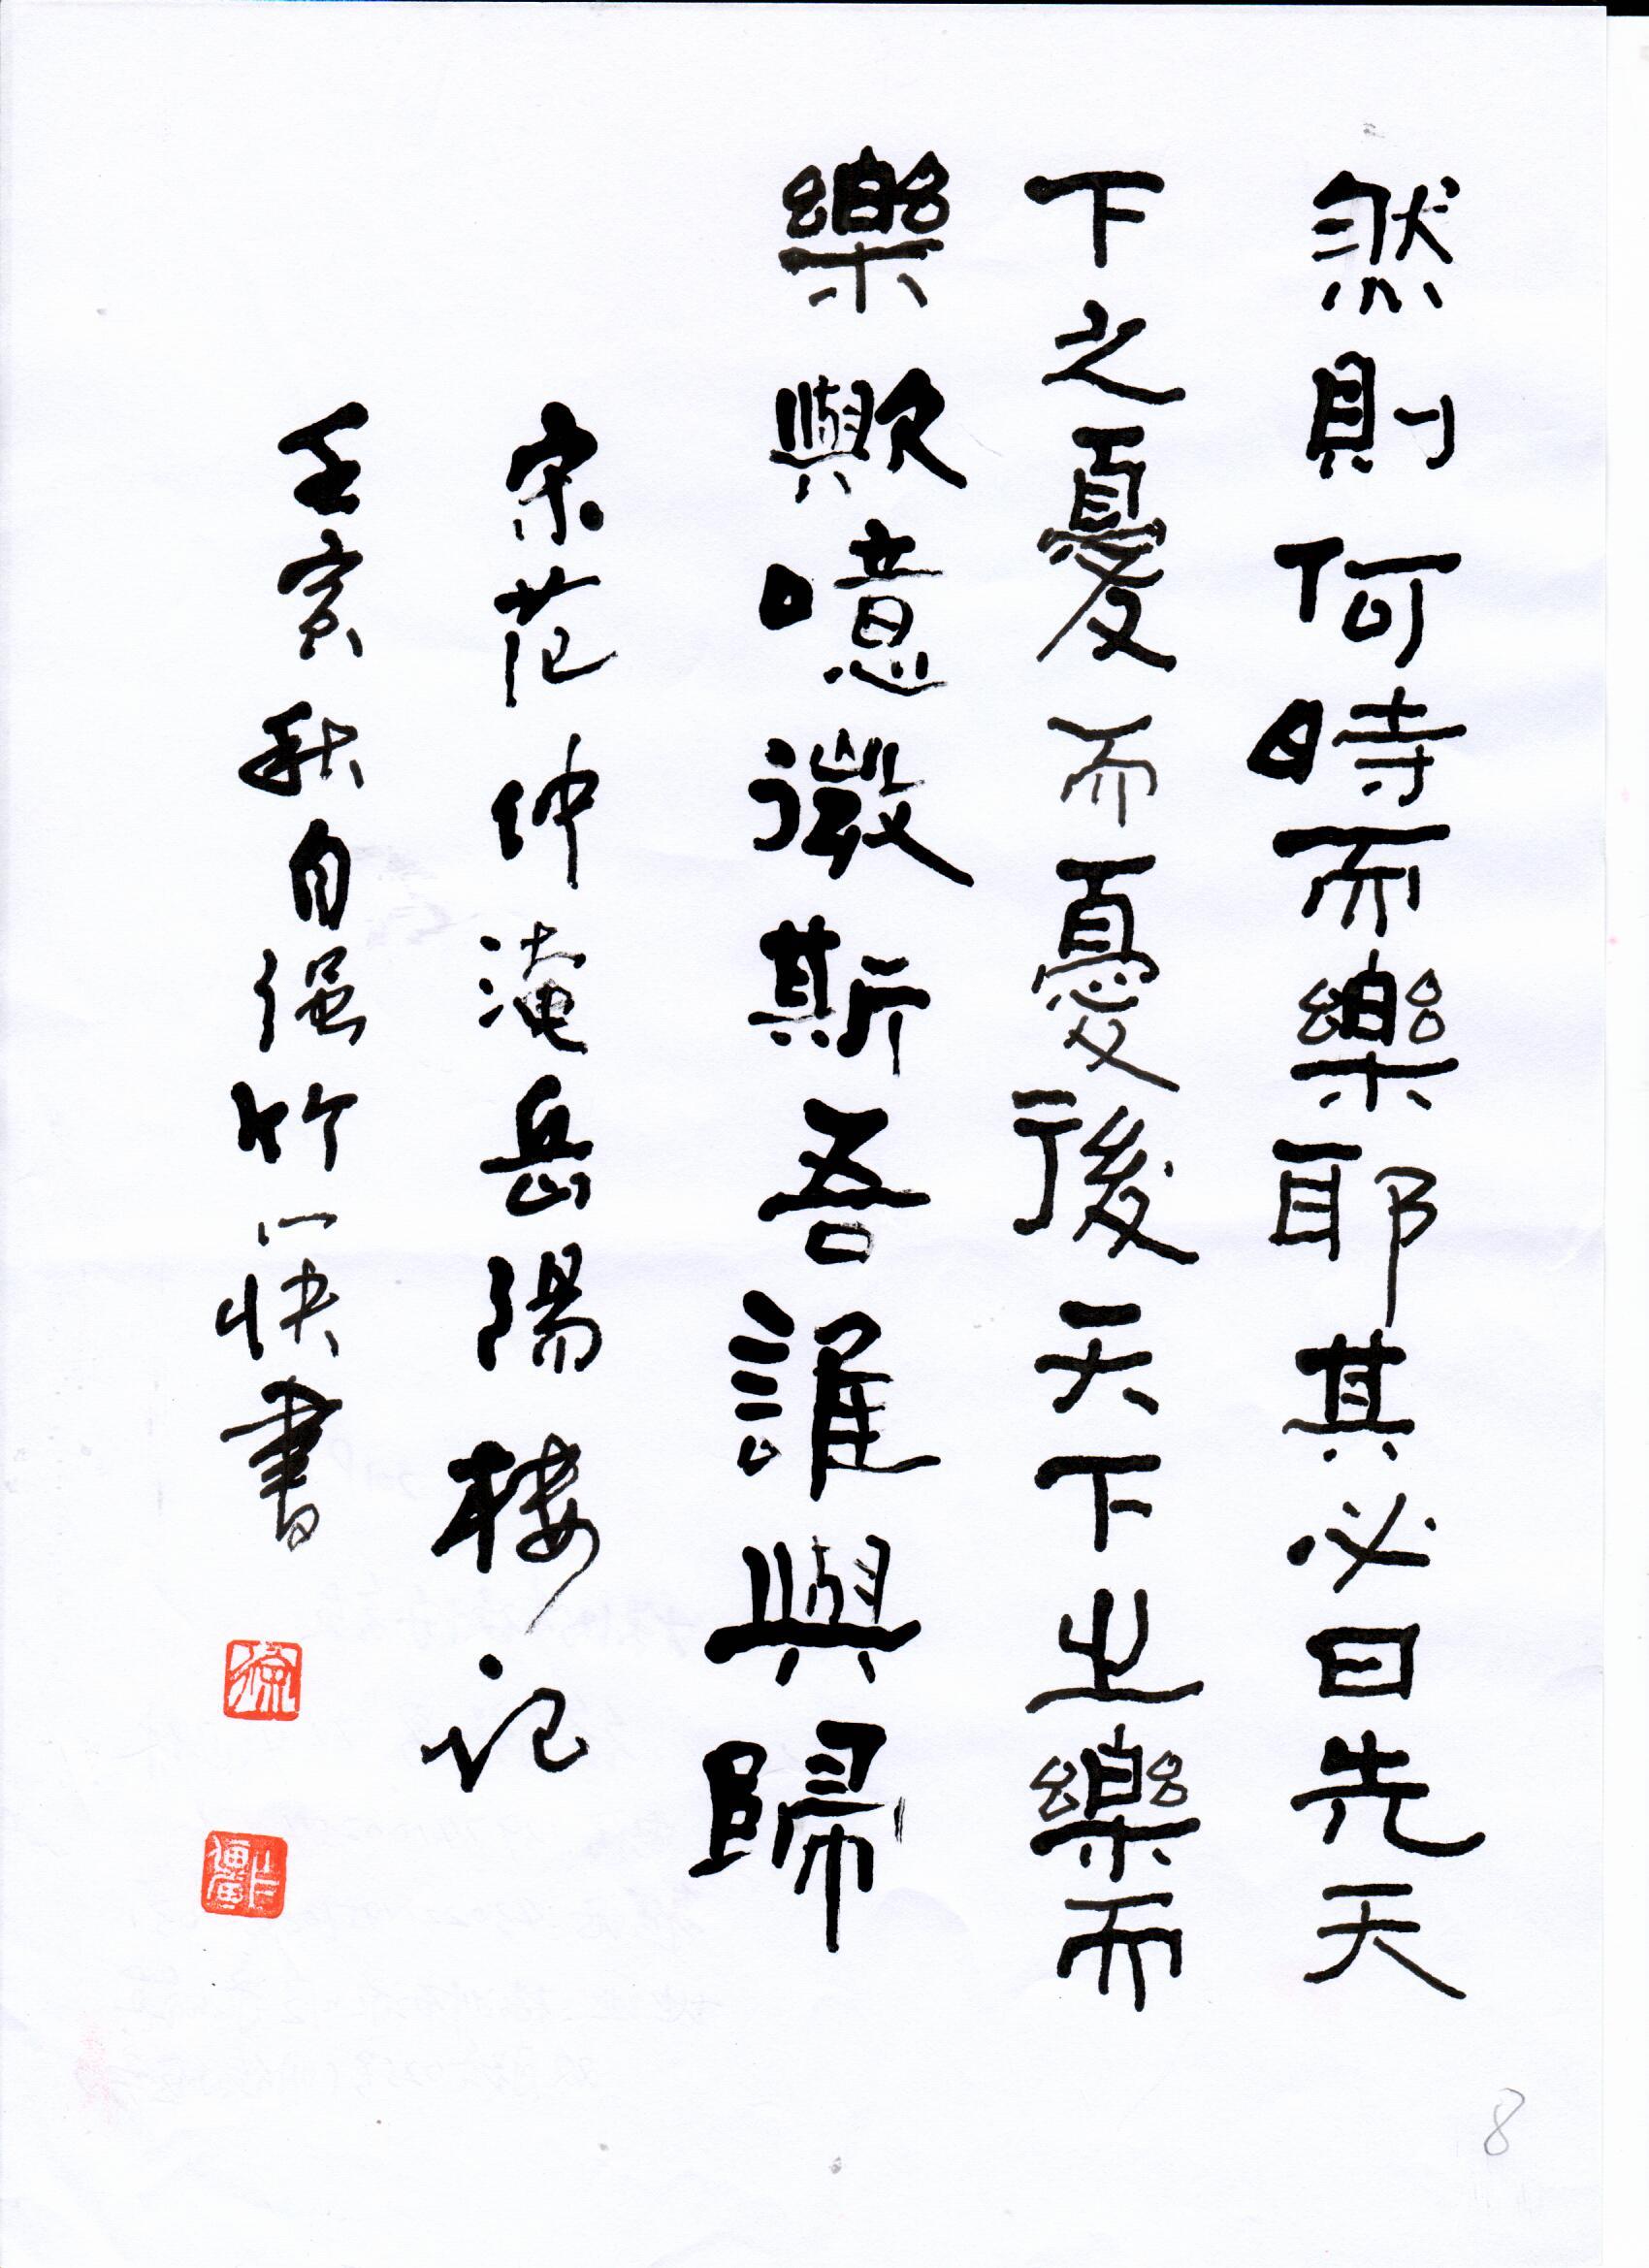 然則何時而樂耶其必曰先天
下之憂而憂後天下之樂而
樂歟噫微斯吾誰與歸
宋范仲淹岳陽樓記
壬寅秋自强竹一快書
徐
8